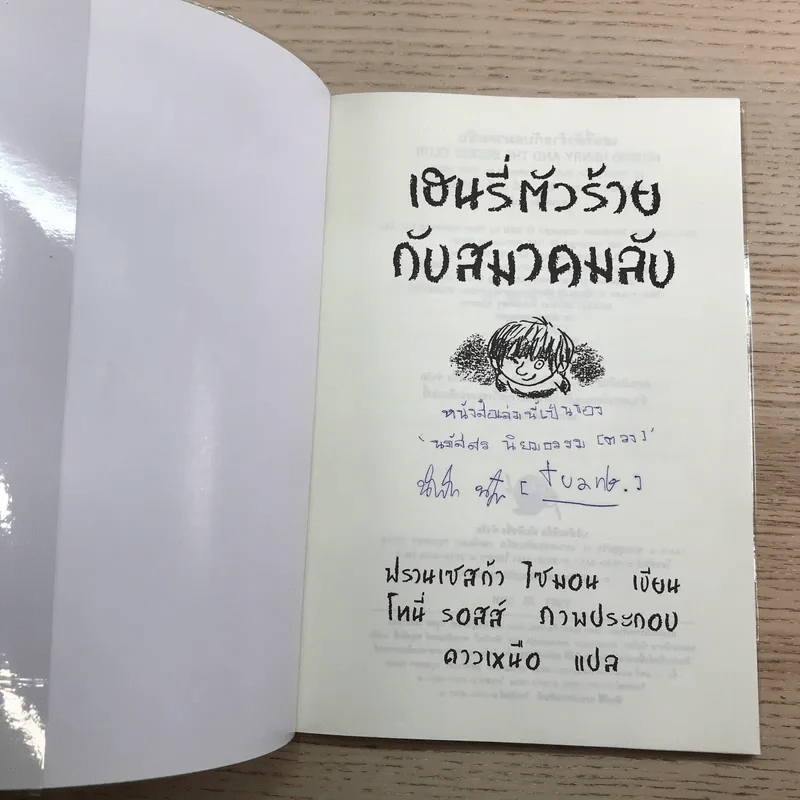 เฮนรี่ตัวร้าย
กับสมาคมลับ
หนังสือเล่มนี้เป็นของ
นิยมธรรม (ตวง)
ฟรานเซสก้า ไซมอน เขียน
โทนี่ รอสส์ ภาพประกอบ
ดาวเหนือ แปล